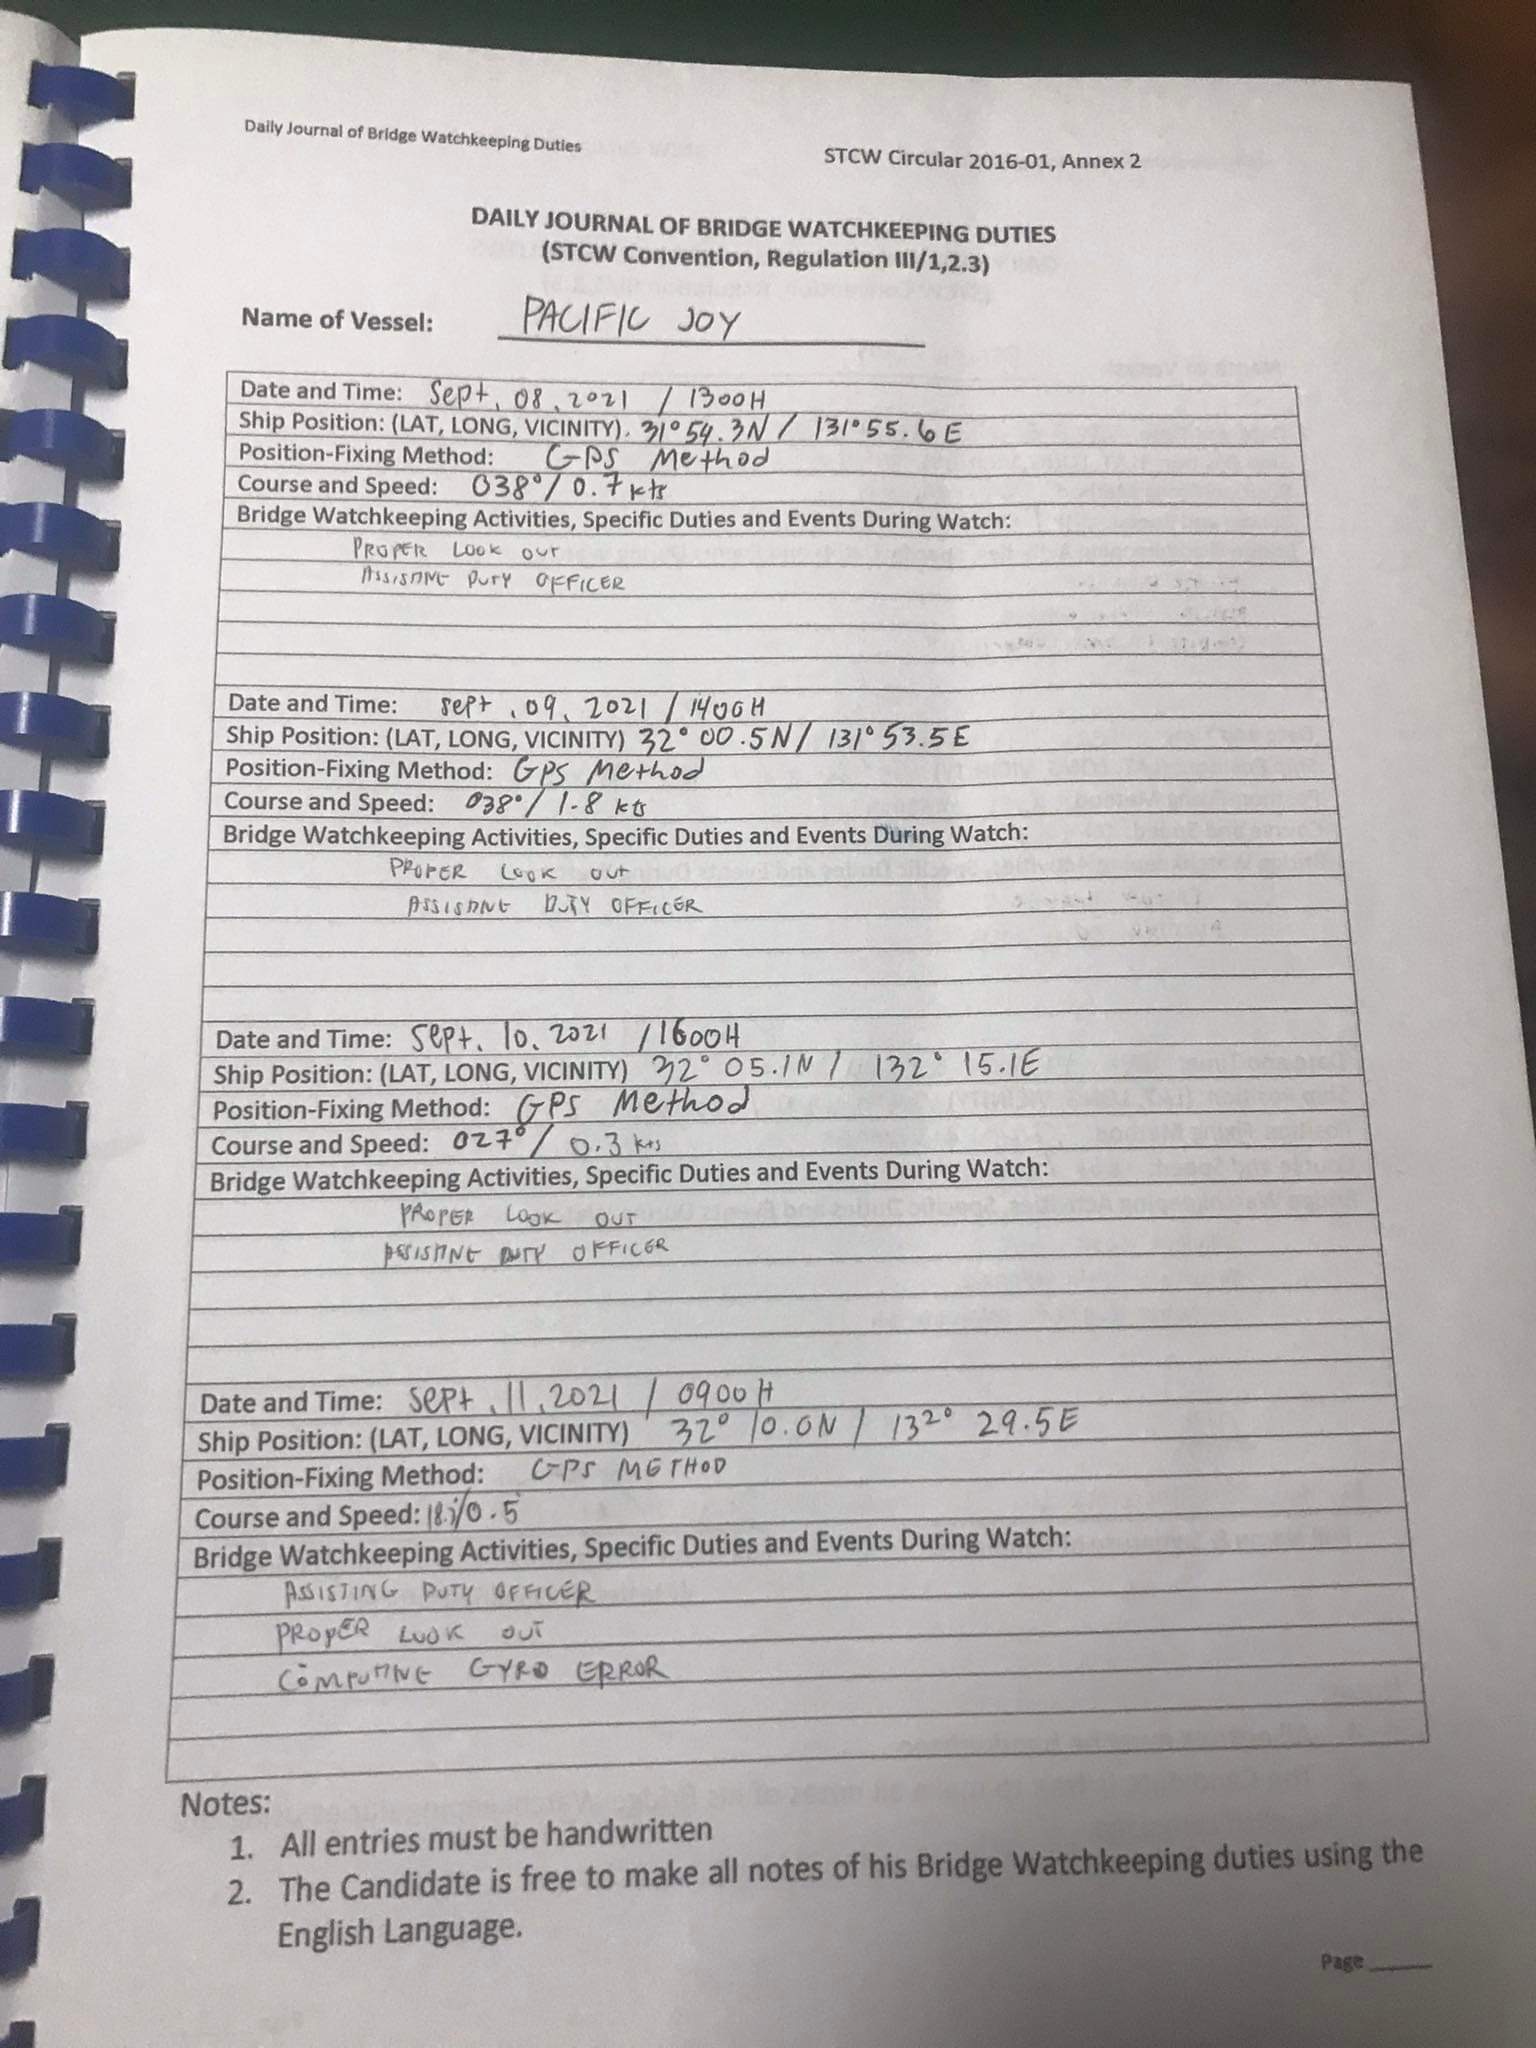 Daily Journal of Bridge Watchkeeping Duties
STCW Circular 2016-01, Annex 2
DAILY JOURNAL OF BRIDGE WATCHKEEPING DUTIES
(STCW Convention, Regulation III/1,2.3)
Name of Vessel: PACIFIC JOY
Date and Time: Sept. 08, 2021 / 1300H
Ship Position: (LAT, LONG, VICINITY). 31° 54.3N / 131° 55.6 E
Position-Fixing Method: GPS Method
Course and Speed: 038° / 0.7 kts
Bridge Watchkeeping Activities, Specific Duties and Events During Watch:
PROPER LOOK OUT
ASSISTING DUTY OFFICER
Date and Time: Sept. 09, 2021 / 1400H
Ship Position: (LAT, LONG, VICINITY) 32° 00.5N / 131° 53.5E
Position-Fixing Method: GPS Method
Course and Speed: 038° / 1.8 kts
Bridge Watchkeeping Activities, Specific Duties and Events During Watch:
PROPER LOOK OUT
ASSISTING DUTY OFFICER
Date and Time: Sept. 10, 2021 / 1600H
Ship Position: (LAT, LONG, VICINITY) 32° 05.1N / 132° 15.1E
Position-Fixing Method: GPS Method
Course and Speed: 027° / 0.3 kts
Bridge Watchkeeping Activities, Specific Duties and Events During Watch:
PROPER LOOK OUT
ASSISTING DUTY OFFICER
Date and Time: Sept. 11, 2021 / 0900H
Ship Position: (LAT, LONG, VICINITY) 32° 10.0N / 132° 29.5E
Position-Fixing Method: GPS METHOD
Course and Speed: /0.5
Bridge Watchkeeping Activities, Specific Duties and Events During Watch:
ASSISTING DUTY OFFICER
PROPER LOOK OUT
COMPUTING GYRO ERROR
Notes:
1. All entries must be handwritten
2. The Candidate is free to make all notes of his Bridge Watchkeeping duties using the
English Language.
Page